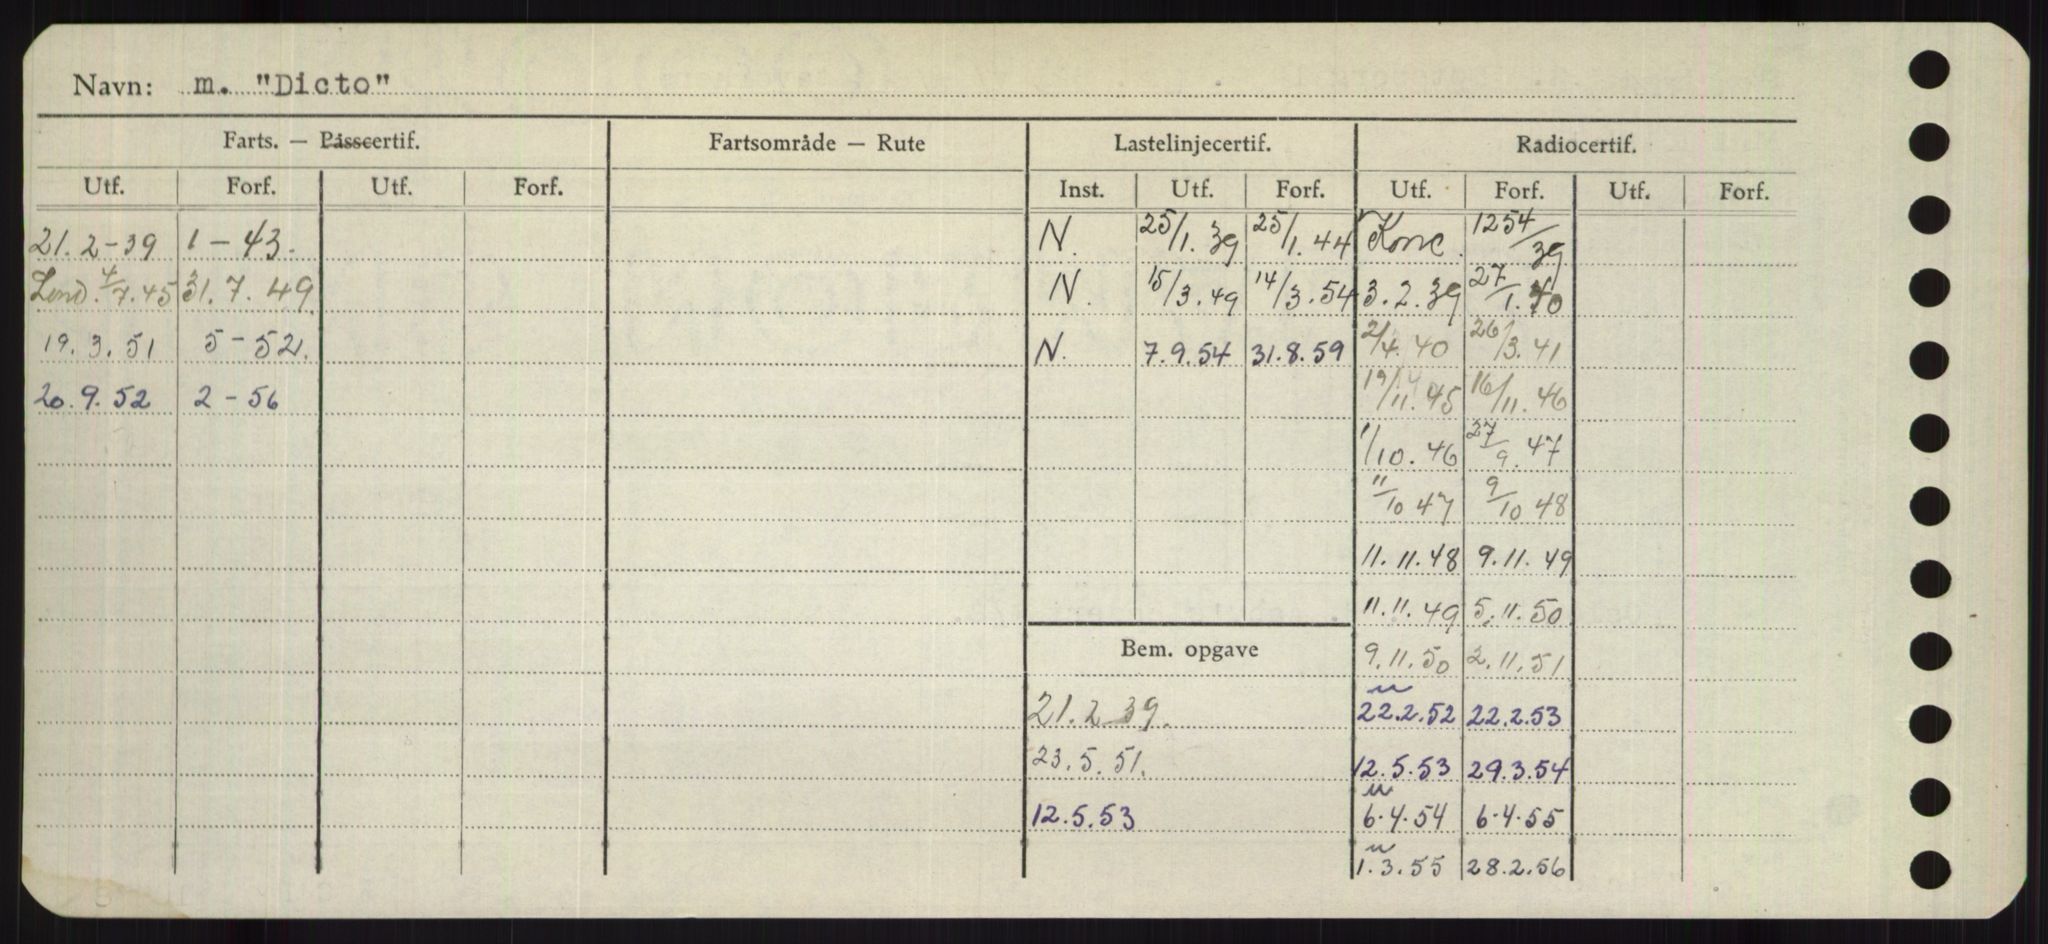 Navn: m. "Dicto"
Farts. — Passcertif. Fartsområde — Rute Lastelinjecertif. Radiocertif.
Utf. Forf. Utf. Forf. Inst. Utf. Forf. Utf. Forf. Utf. Forf.
21.2-39 1-43. N. 25/1.39 25/1.44 Konc. 1254/39
Lond. 4/7.45 31.7.49 N. 15/3.49 14/3.54 3.2.39 27/1.40
19.3.51 5-52. N. 7.9.54 31.8.59 2/4.40 26/3.41
20.9.52 2-56 19/11.45 16/11.46
1/10.46 27/9.47
11/10 47 9/10 48
11.11.48 9.11.49
11.11.49 5.11.50
Bem. opgave 9.11.50 2.11.51
21.2 39. 22.2.52 22.2.53
23.5.51. 12.5.53 29.3.54
12.5.53 6.4.54 6.4.55
1.3.55 28.2.56